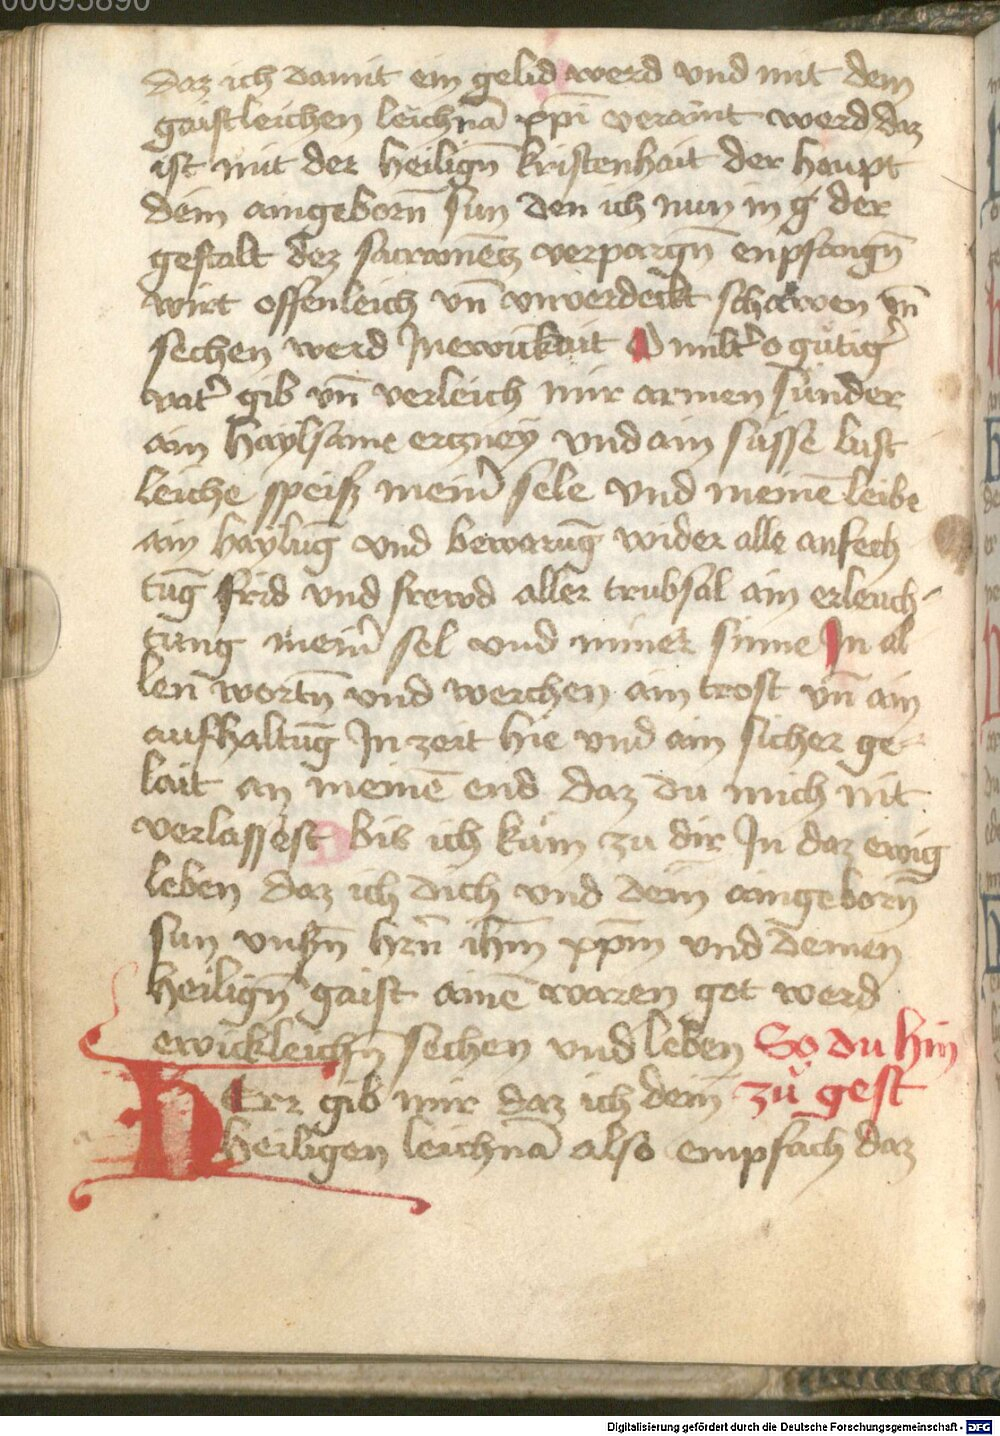 00095890
daz ich damit ein gelid werd und mit dem
gaistleichen leichnā xp̄i veraint werd daz
ist mit der heilign̄ kristenhait der haupt
dein aingeborn̄ sun den ich nun in der
gestalt dez sacramēts verpargn̄ enpfangn̄
wirt offenleich vn̄ vnverdeckt schawen vn̄
sechen werd In ewikait O milt͛ o gütig͛
vat͛ gib vn̄ verleich mir armen sünder
ain haylsame ertzney und ain süsse lust
leiche speiß mein͛ sele und meinē leibe
ain haylūg und bewarūg wider alle anfech
tūg frid und frewd aller trubsal ain erleuch-
tung mein͛ sel und miner sinne In al
len̄ wortn̄ und werchen ain trost vn̄ ain
aufhaltūg In zeit hie und ain sicher ge-
lait an meinē end daz du mich nit
verlassest bis ich kum zu dir In daz ewig
leben daz ich dich und dein aingeborn̄
sun vnsn̄ hrn̄ ihm̄ xp̄m und deinen
heilign̄ gaist ainē waren got werd
ewickleichn̄ sechen und leben So du hin
HErr gib mir daz ich dein zu gest
heiligen leichnā also empfach daz
Digitalisierung gefördert durch die Deutsche Forschungsgemeinschaft - DFG